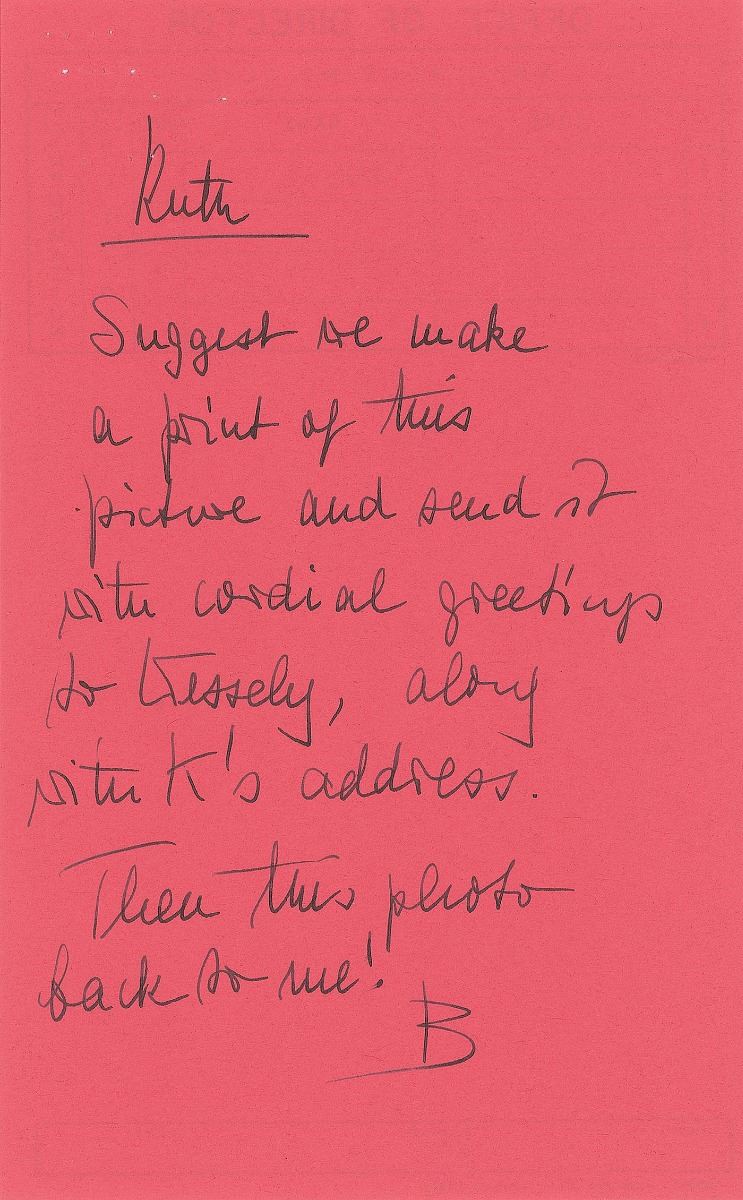 OFFICE OF DIRECTOR
Ruth
Suggest we make
a print of this
picture and send it
with cordial greetings
to Wessely, along
with K's address.
Then this photo
back to me!
B